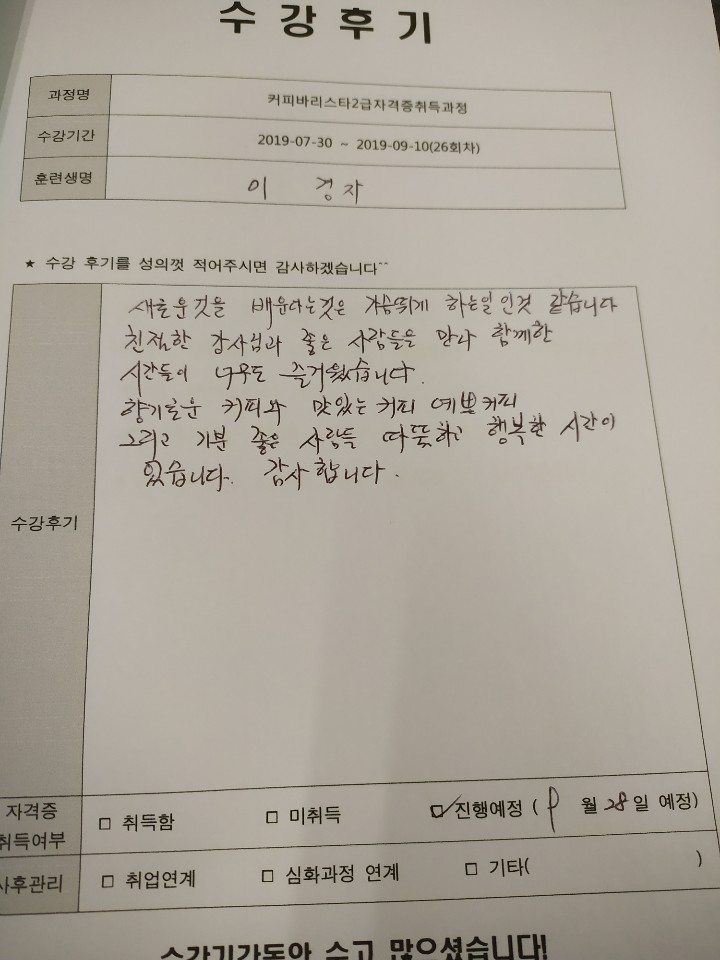 수강후기
과정명 커피바리스타2급자격증취득과정
수강기간 2019-07-30 ~ 2019-09-10(26회차)
훈련생명 이 경자
★ 수강 후기를 성의껏 적어주시면 감사하겠습니다^^
수강후기
새로운것을 배운다는것은 가슴뛰게 하는일인것 같습니다
친절한 강사님과 좋은 사람들을 만나 함께한
시간들이 너무도 즐거웠습니다.
향기로운 커피와 맛있는 커피 예쁘커피
그리고 기분 좋은 사람들 따뜻하고 행복한 시간이
었습니다. 감사합니다.
자격증
취득여부 □ 취득함 □ 미취득 ☑ 진행예정 ( 월 28일 예정)
사후관리 □ 취업연계 □ 심화과정 연계 □ 기타( )
수강기간동안 수고 많으셨습니다!